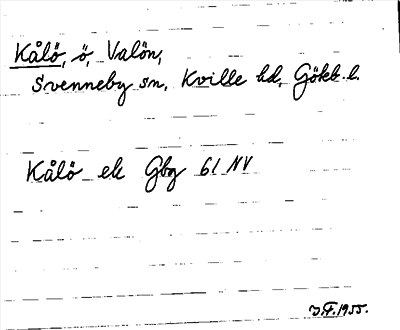 Kålö, ö, Valön,
Svenneby sn, Kville hd, Göteb. l.
Kålö ek Gbg 61 NV
1955.